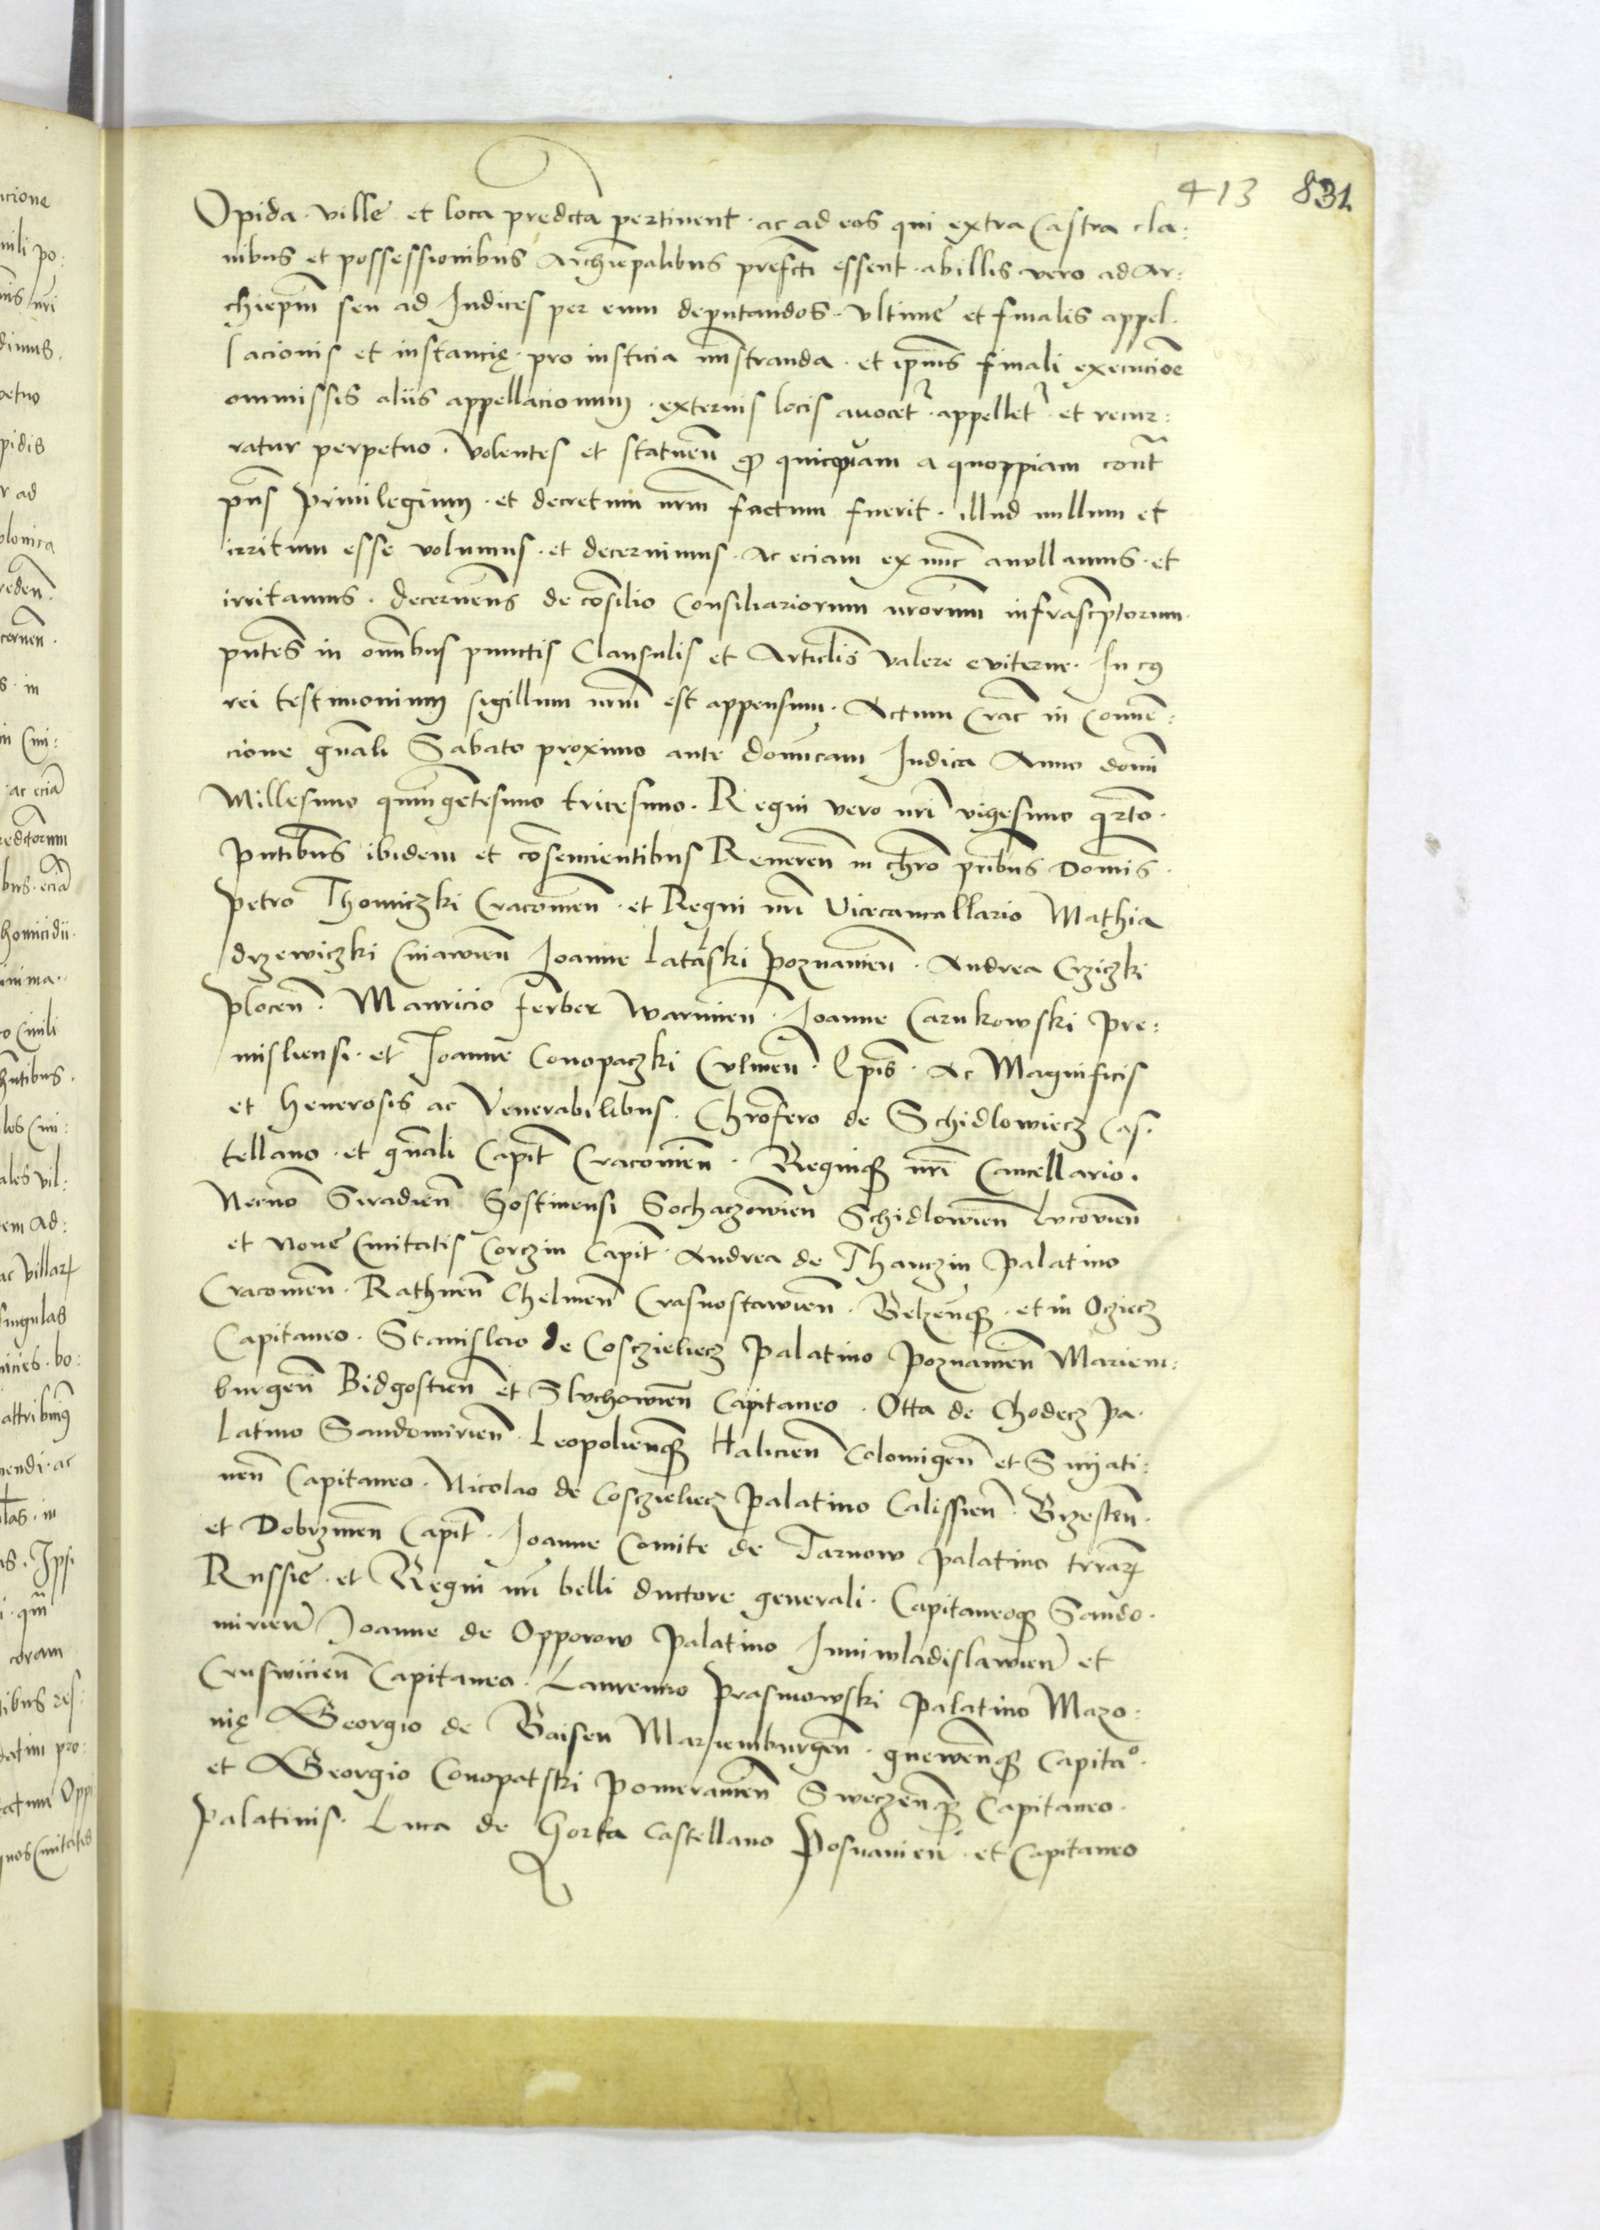 413 831
Opida · ville · et loca predcta pertinent · ac ad eos qui extra Castra cla:
nibus et possessionibus Archiepalibus prefcti essent · ab illis vero ad Ar:
chiepm seu ad Iudices per eum deputandos · vltime et finalis appel·
lacionis et instancię · pro iusticia mnstranda · et ipius finali execucioe
ommissis aliis appellacionum · externis locis auocet · appellet · et recur:
ratur perpetuo · Volentes et statuen quicquam a quoppiam cont
pns Priuilegium · et decretum nrm factum fuerit · illud nullum et
irritum esse volumus · et decernimus · Ac eciam ex nuc anullamus · et
irritamus · decernens de cosilio Consiliariorum nrorum infrascptorum ·
pntes in omibus punctis Clausulis et Articlis valere eviterne · In cuius
rei testimonium sigillum nrm est appensum · Actum Crac in Conuen:
cione gnali Sabato proximo ante dominicam Iudica Anno domi
Millesimo quingetesimo tricesimo · Regni vero nri vigesimo qrto ·
Pntibus ibidem et cosencientibus Reueren in chro pribus Domis ·
Petro Thomiczki Cracouien · et Regni nri Vicecancellario Mathia
drzewiczki Cuiauien Ioanne Latalski Poznanien · Andrea Crziczki
plocen · Mauricio ferber warmien · Ioanne Carnkowski Pre:
misliensi · et Joanne Conopaczki Culmen · Epis · Ac Magnificis
et Generosis ac Venerabilibus · Chrofero de Schidlowiecz Cas·
tellano · et gnali Capit Cracouien · Regnique nri Cancellario ·
Necno Siradien Gostinensi Sochaczowien Schidlowien Lucouien
et Noue Ciuitatis Corczin Capit · Andrea de Thanczin Palatino
Cracouien · Rathnen Chelmen Crasnostawien · Belzenque · et in Oziecz
Capitaneo · Stanislao de Cosczieliecz Palatino Poznanien Mariem:
burgen Bidgostien et Sluchowien Capitaneo · Otta de Chodecz Pa·
latino Sandomirien · Leopolienque Halicien Colomigen et Snyati:
nen Capitaneo · Nicolao de Cosczieliecz Palatino Calissien · Brzesten ·
et Dobrzinen Capit · Ioanne Comite de Tarnow Palatino trrarum
Russie · et Regni nri belli ductore generali · Capitaneoque Sando·
mirien Joanne de Opporow Palatino Iuniwladislawien et
Cruswicien Capitaneo · Laurencio Prasmowski Palatino Mazo:
uię Georgio de Baisen Mariemburgen · gnewenque Capitao ·
et Georgio Conopatski Pomeranien Sweczenque Capitaneo ·
Palatinis · Luca de Gorka Castellano Posnanien · et Capitaneo